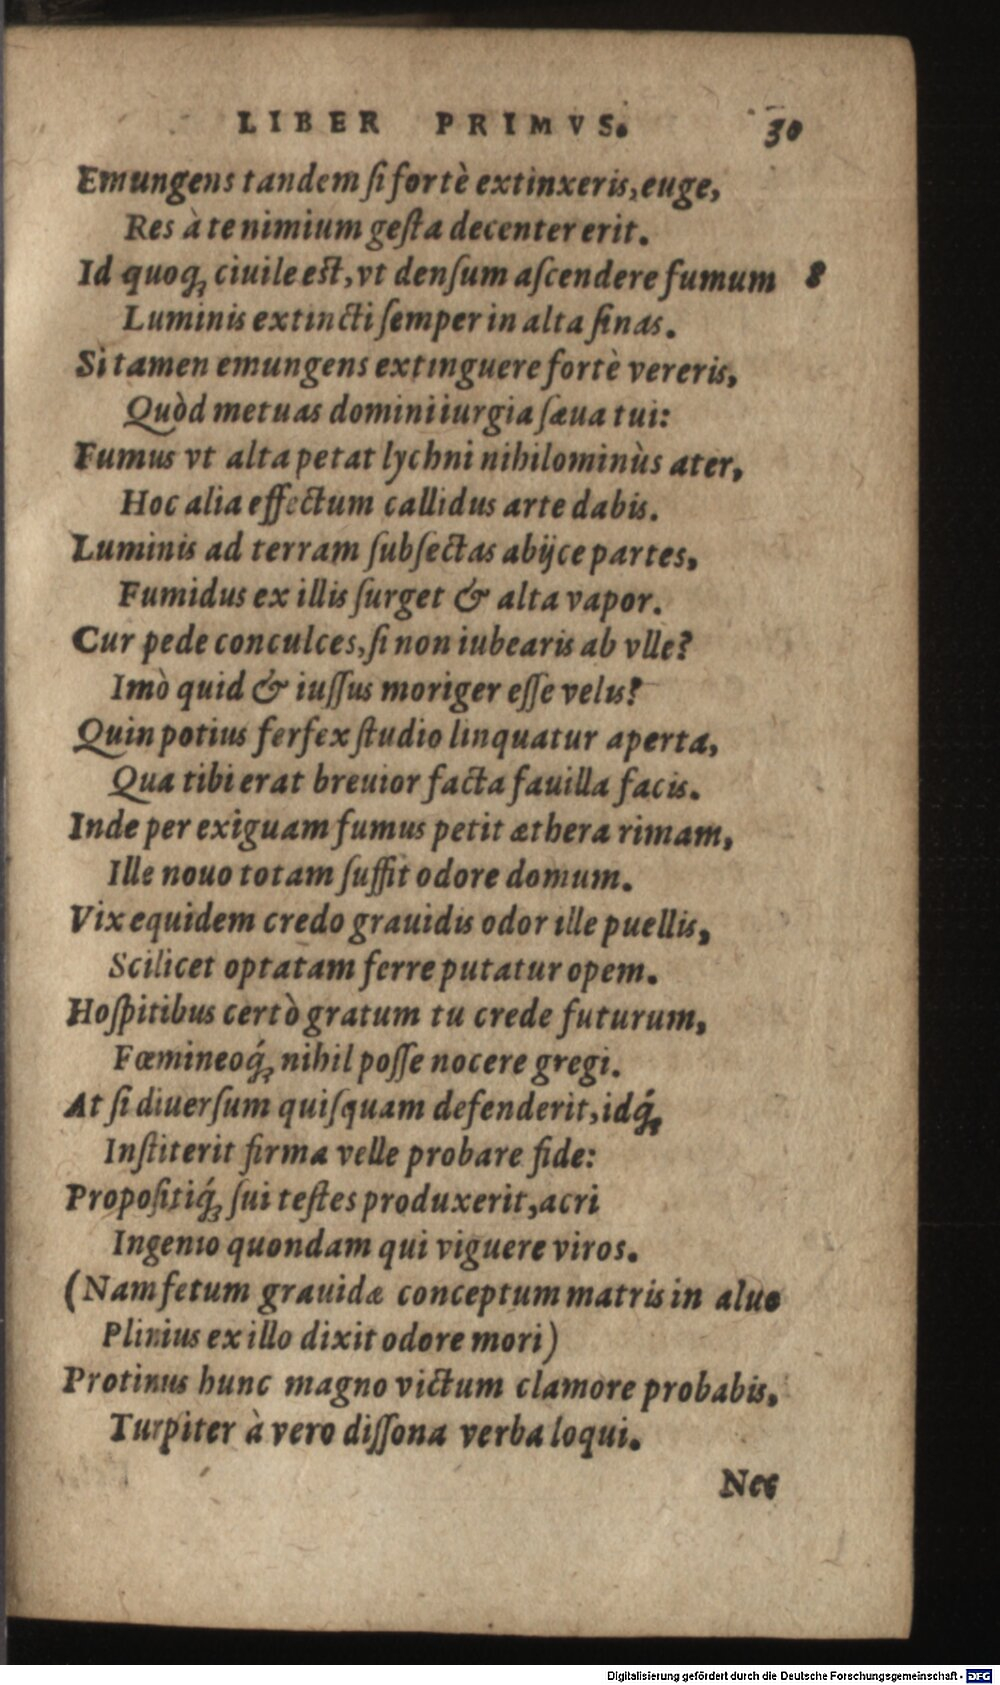 LIBER PRIMVS. 30
Emungens tandem ſi fortè extinxeris, euge,
Res à te nimium geſta decenter erit.
Id quoq; ciuile est, vt denſum aſcendere fumum 8
Luminis extincti ſemper in alta ſinas.
Si tamen emungens extinguere fortè vereris,
Quòd metuas domini iurgia ſæua tui:
Fumus vt alta petat lychni nihilominùs ater,
Hoc alia effectum callidus arte dabis.
Luminis ad terram ſubſectas abijce partes,
Fumidus ex illis ſurget & alta vapor.
Cur pede conculces, ſi non iubearis ab vlle?
Imò quid & iuſſus moriger eſſe velis?
Quin potius ferfex ſtudio linquatur aperta,
Qua tibi erat breuior facta fauilla facis.
Inde per exiguam fumus petit æthera rimam,
Ille nouo totam ſuffit odore domum.
Vix equidem credo grauidis odor ille puellis,
Scilicet optatam ferre putatur opem.
Hoſpitibus certò gratum tu crede futurum,
Fœmineoq́; nihil poſſe nocere gregi.
At ſi diuerſum quiſquam defenderit, idq́;
Inſtiterit firma velle probare fide:
Propoſitiq́; ſui teſtes produxerit, acri
Ingenio quondam qui viguere viros.
(Nam fetum grauidæ conceptum matris in aluo
Plinius ex illo dixit odore mori)
Protinus hunc magno victum clamore probabis,
Turpiter à vero diſſona verba loqui.
Nec
Digitalisierung gefördert durch die Deutsche Forschungsgemeinschaft - DFG